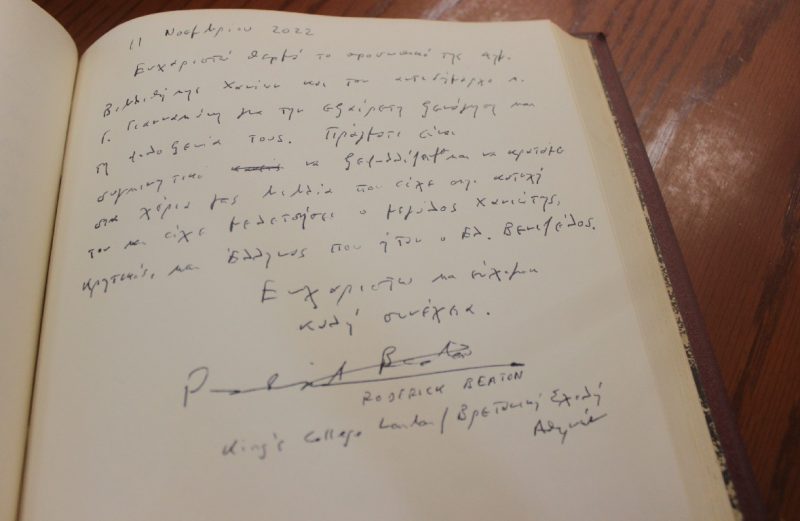 11 Νοεμβρίου 2022
Ευχαριστώ θερμά το προσωπικό της Δημ.
Βιβλιοθήκης Χανίων και τον αντιδήμαρχο κ.
Γ. Γιαννακάκη για την εξαίρετη ξενάγηση και
τη φιλοξενία τους. Πράγματι είναι
συγκινητικό να ξεφυλλίζομε και να κρατάμε
στα χέρια μας βιβλία που είχε στην κατοχή
του και είχε μελετήσει ο μεγάλος Χανιώτης,
Κρητικός, και Έλληνας που ήταν ο Ελ. Βενιζέλος.
Ευχαριστώ και εύχομαι
καλή συνέχεια.
Roderick Beaton
RODERICK BEATON
King's College London / Βρετανική Σχολή
Αθηνών